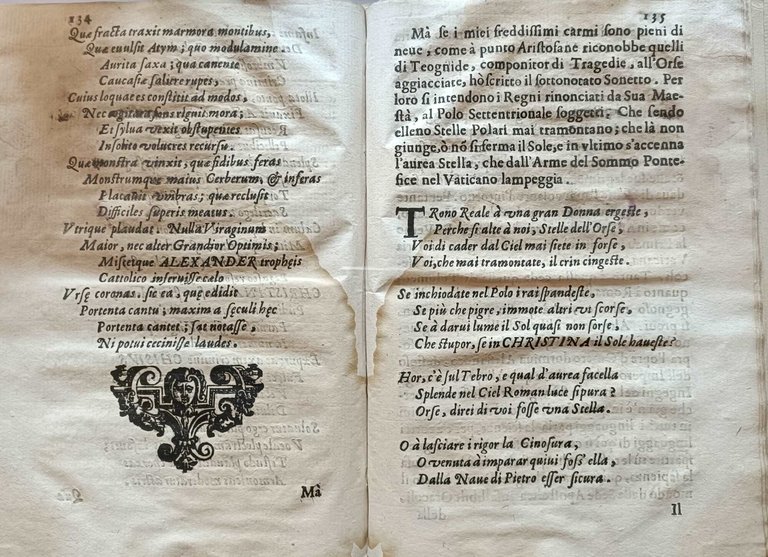 134
Quæ fracta traxit marmora montibus,
Quæ euulsit Atym; quo modulamine
Aurita saxa; qua canente
Caucasiæ saliere rupes,
Cuius loquaces constitit ad modos,
Nec agitara fons rigni mora;
Et sylua vexit obstupentes
Insolito volucres recursu.
Quæ monstra vinxit, quæ fidibus feras
Monstrumque maius Cerberum, & inferas
Placauit vmbras; qua reclusit
Difficiles superis meatus.
Vtrique plaudat. Nulla Viraginum
Maior, nec alter Grandior Optimis;
Mistetque ALEXANDER trophęis
Cattolico inseruisse cælo
Vrsę coronas. sic ea, quę edidit
Portenta cantu; maxima sęculi hęc
Portenta cantet; sat notasse,
Ni potui cecinisse laudes.
Mà
135
Mà se i miei freddissimi carmi sono pieni di
neue, come à punto Aristofane riconobbe quelli
di Teognide, componitor di Tragedie, all'Orse
agiacciate, hò scritto il sottonotato Sonetto. Per
loro si intendono i Regni rinonciati da Sua Mae-
stà, al Polo Settentrionale soggetti; Che sendo
elleno Stelle Polari mai tramontano; che là non
giunge, ò nò si ferma il Sole, e in vltimo s'accenna
l'aurea Stella, che dall'Arme del Sommo Ponte-
fice nel Vaticano lampeggia.
TRono Reale à vna gran Donna ergeste,
Perche si alte à noi, Stelle dell'Orse,
Voi di cader dal Ciel mai siete in forse,
Voi, che mai tramontate, il crin cingeste.
Se inchiodate nel Polo i rai spandeste,
Se più che pigre, immote altri vi scorse,
Se à darui lume il Sol quasi non sorse,
Che stupor, se in CHRISTINA il Sole haueste?
Hor, c'è sul Tebro, e qual d'aurea facella
Splende nel Ciel Roman luce sì pura?
Orse, direi di voi fosse vna Stella.
O à lasciare i rigor la Cinosura,
O venuta à imparar quiui foss'ella,
Dalla Naue di Pietro esser sicura.
Il